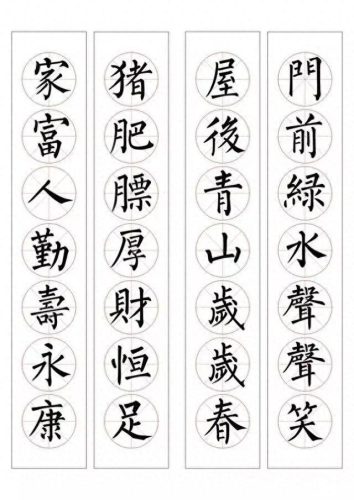 門前緑水聲聲笑
屋後青山歲歲春
猪肥膘厚財恒足
家富人勤壽永康